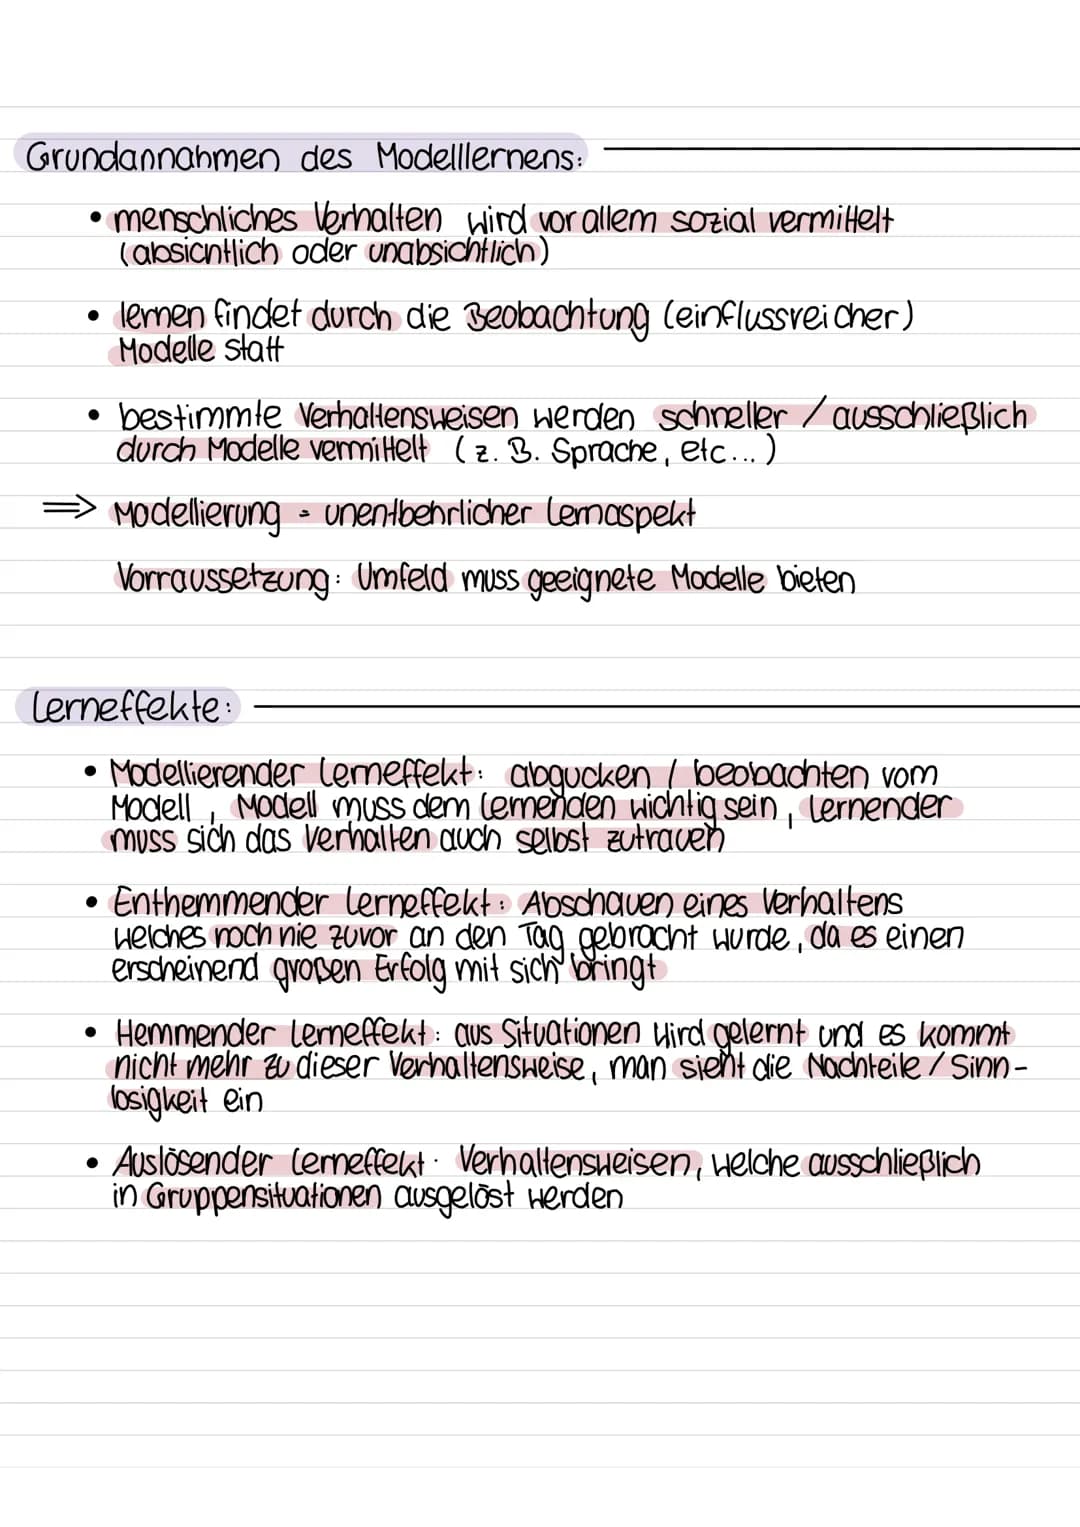 Grundannahmen des Modelllernens:
• menschliches Verhalten wird vor allem sozial vermittelt
(absichtlich oder unabsichtlich)
• lernen findet durch die Beobachtung (einflussreicher)
Modelle statt
• bestimmte Verhaltensweisen werden schneller / ausschließlich
durch Modelle vermittelt (z. B. Sprache, etc...)
⇒ Modellierung = unentbehrlicher Lernaspekt
Vorraussetzung: Umfeld muss geeignete Modelle bieten
Lerneffekte:
• Modellierender Lerneffekt: abgucken / beobachten vom
Modell, Modell muss dem lernenden wichtig sein, Lernender
muss sich das Verhalten auch selbst zutrauen
• Enthemmender Lerneffekt: Abschauen eines Verhaltens
welches noch nie zuvor an den Tag gebracht wurde, da es einen
erscheinend großen Erfolg mit sich bringt
• Hemmender Lerneffekt: aus Situationen wird gelernt und es kommt
nicht mehr zu dieser Verhaltensweise, man sieht die Nachteile / Sinn-
losigkeit ein
• Auslösender Lerneffekt: Verhaltensweisen, welche ausschließlich
in Gruppensituationen ausgelöst werden